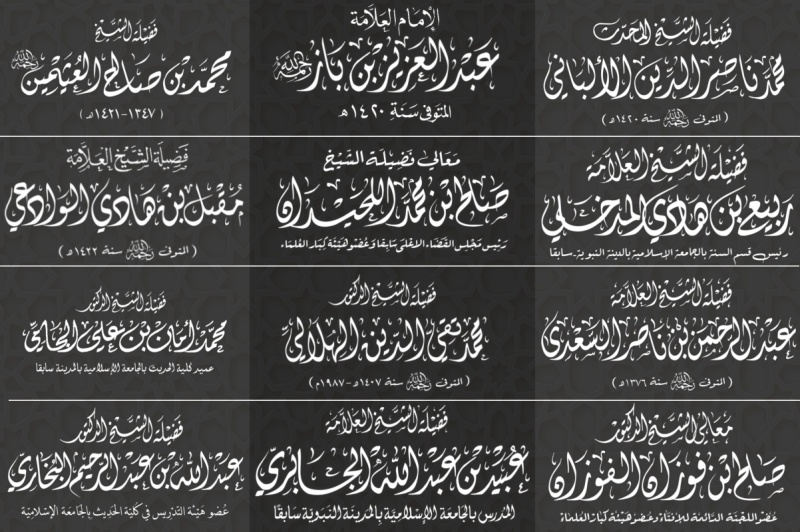 فضيلة الشيخ المحدث
محمد ناصر الدين الألباني
( المتوفى رحمه الله سنة ١٤٢٠هـ )
الإمام العلامة
عبد العزيز بن باز رحمه الله
المتوفى سنة ١٤٢٠هـ
فضيلة الشيخ
محمد بن صالح العثيمين رحمه الله
( ١٣٤٧-١٤٢١هـ )
فضيلة الشيخ العلامة
ربيع بن هادي المدخلي
رئيس قسم السنة بالجامعة الإسلامية بالمدينة النبوية. سابقا
معالي فضيلة الشيخ
صالح ابن محمد اللحيدان
رئيس مجلس القضاء الاعلى سابقا وعضو هيئة كبار العلماء
فضيلة الشيخ العلامة
مقبل بن هادي الوادعي
( المتوفى رحمه الله سنة ١٤٢٢هـ )
فضيلة الشيخ العلامة
عبد الرحمن بن ناصر السعدي
( المتوفى رحمه الله سنة ١٣٧٦هـ )
فضيلة الشيخ الدكتور
محمد تقي الدين الهلالي
( المتوفى رحمه الله سنة ١٤٠٧هـ-١٩٨٧م )
فضيلة الشيخ الدكتور
محمد أمان بن علي الجامي
عميد كلية الحديث بالجامعة الإسلامية بالمدينة سابقا
معالي الشيخ الدكتور
صالح ابن فوزان الفوزان
عضو اللجنة الدائمة للإفتاء وعضو هيئة كبار العلماء
فضيلة الشيخ العلامة
عبيد بن عبد الله الجابري
المدرس بالجامعة الإسلامية بالمدينة النبوية سابقا
فضيلة الشيخ الدكتور
عبد الله بن عبد الرحيم البخاري
عضو هيئة التدريس في كلية الحديث بالجامعة الإسلامية